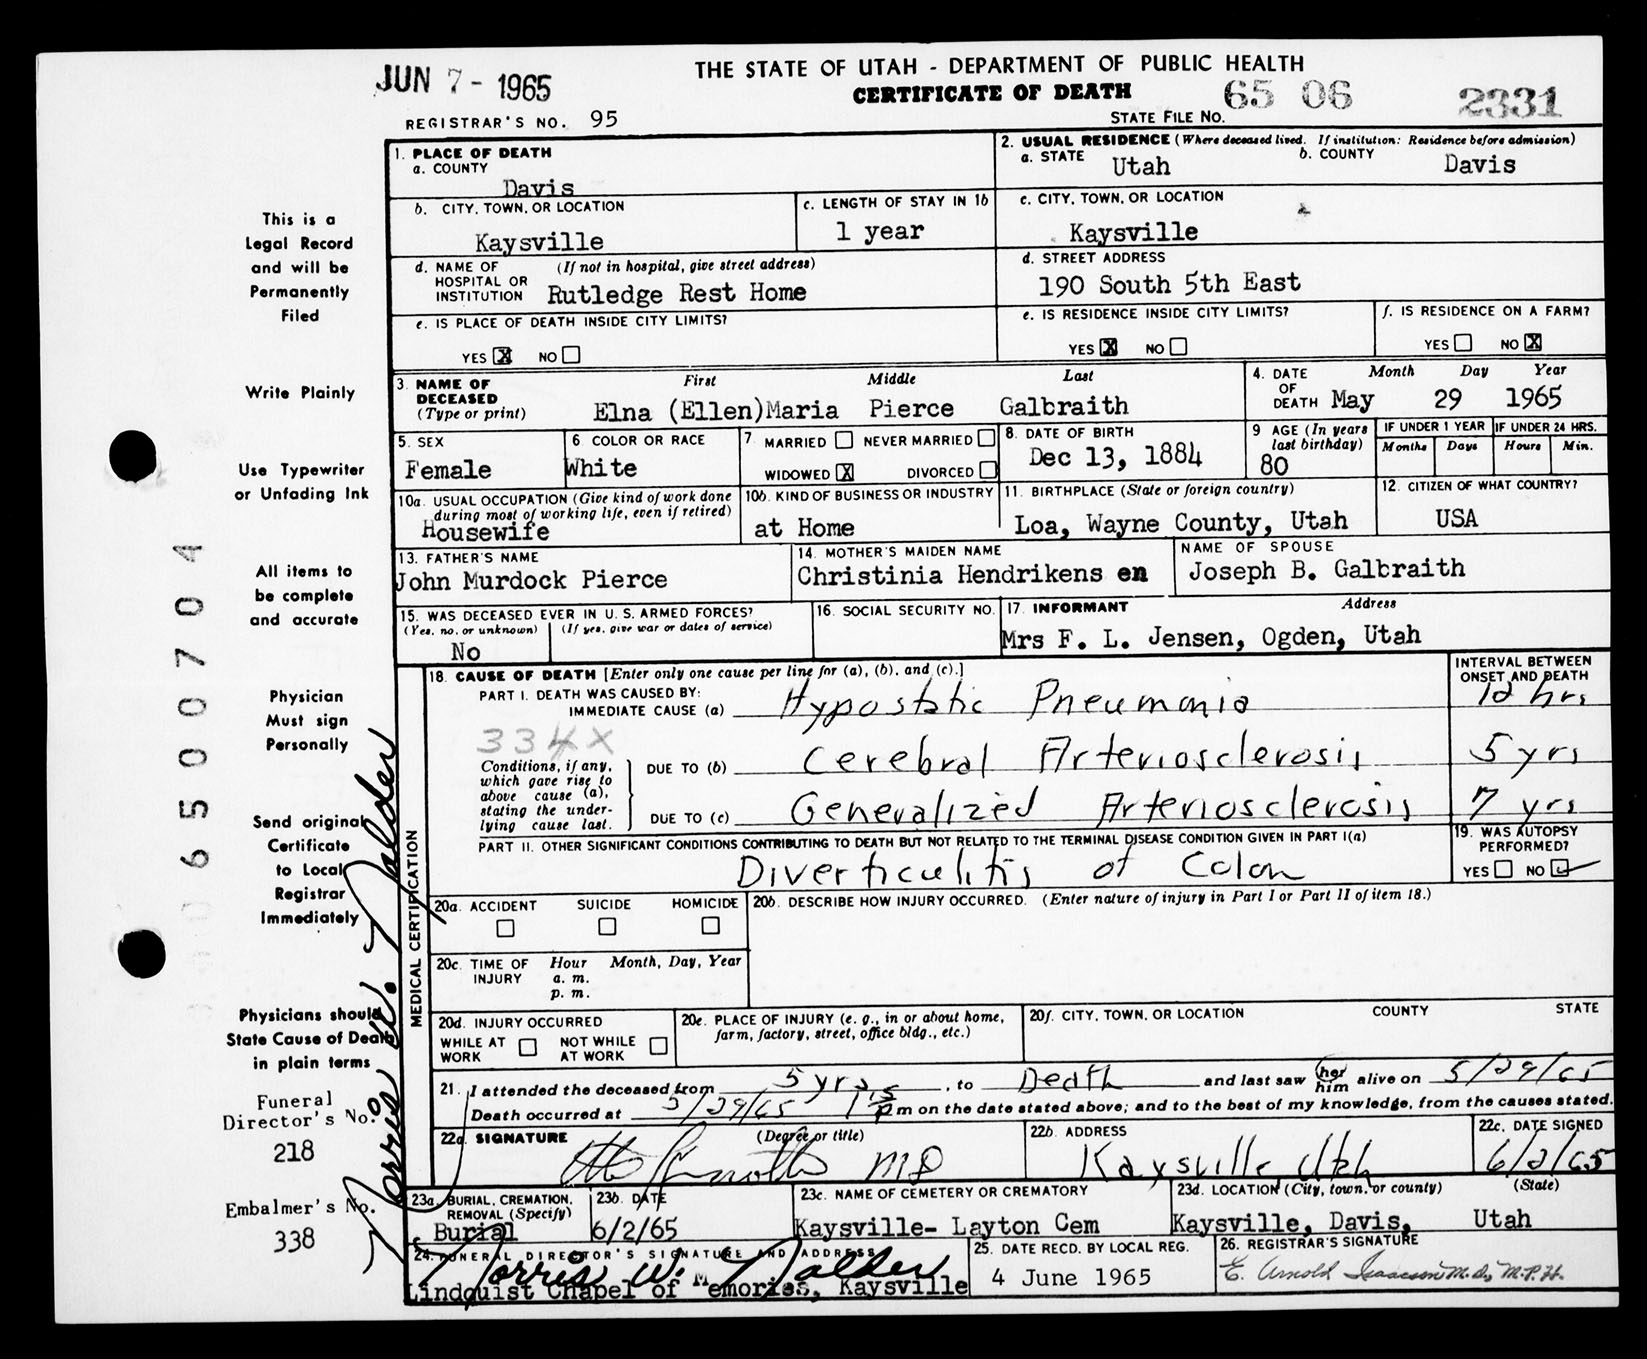 JUN 7 - 1965
THE STATE OF UTAH - DEPARTMENT OF PUBLIC HEALTH
CERTIFICATE OF DEATH
65 06 2331
REGISTRAR'S NO. 95
STATE FILE NO.
1. PLACE OF DEATH
a. COUNTY
Davis
2. USUAL RESIDENCE (Where deceased lived. If institution: Residence before admission)
a. STATE Utah
b. COUNTY Davis
b. CITY, TOWN, OR LOCATION
Kaysville
c. LENGTH OF STAY IN 1b
1 year
c. CITY, TOWN, OR LOCATION
Kaysville
d. NAME OF HOSPITAL OR INSTITUTION (If not in hospital, give street address)
Rutledge Rest Home
d. STREET ADDRESS
190 South 5th East
e. IS PLACE OF DEATH INSIDE CITY LIMITS?
YES X NO
e. IS RESIDENCE INSIDE CITY LIMITS?
YES X NO
f. IS RESIDENCE ON A FARM?
YES NO X
3. NAME OF DECEASED (Type or print)
First Middle Last
Elna (Ellen)Maria Pierce Galbraith
4. DATE OF DEATH
Month Day Year
May 29 1965
5. SEX
Female
6 COLOR OR RACE
White
7 MARRIED NEVER MARRIED
WIDOWED X DIVORCED
8. DATE OF BIRTH
Dec 13, 1884
9 AGE (In years last birthday)
80
IF UNDER 1 YEAR
Months Days
IF UNDER 24 HRS.
Hours Min.
10a. USUAL OCCUPATION (Give kind of work done during most of working life, even if retired)
Housewife
10b. KIND OF BUSINESS OR INDUSTRY
at Home
11. BIRTHPLACE (State or foreign country)
Loa, Wayne County, Utah
12. CITIZEN OF WHAT COUNTRY?
USA
13. FATHER'S NAME
John Murdock Pierce
14. MOTHER'S MAIDEN NAME
Christinia Hendrikens en
NAME OF SPOUSE
Joseph B. Galbraith
15. WAS DECEASED EVER IN U. S. ARMED FORCES?
(Yes, no, or unknown) (If yes, give war or dates of service)
No
16. SOCIAL SECURITY NO.
17. INFORMANT Address
Mrs F. L. Jensen, Ogden, Utah
MEDICAL CERTIFICATION
18. CAUSE OF DEATH [Enter only one cause per line for (a), (b), and (c).]
INTERVAL BETWEEN ONSET AND DEATH
PART I. DEATH WAS CAUSED BY:
IMMEDIATE CAUSE (a) Hypostatic Pneumonia 12 hrs
334X
Conditions, if any, which gave rise to above cause (a), stating the underlying cause last.
DUE TO (b) Cerebral Arteriosclerosis 5 yrs
DUE TO (c) Generalized Arteriosclerosis 7 yrs
PART II. OTHER SIGNIFICANT CONDITIONS CONTRIBUTING TO DEATH BUT NOT RELATED TO THE TERMINAL DISEASE CONDITION GIVEN IN PART I(a)
Diverticulitis of Colon
19. WAS AUTOPSY PERFORMED?
YES NO
20a. ACCIDENT SUICIDE HOMICIDE
20b. DESCRIBE HOW INJURY OCCURRED. (Enter nature of injury in Part I or Part II of item 18.)
20c. TIME OF INJURY
Hour Month, Day, Year
a. m.
p. m.
20d. INJURY OCCURRED
WHILE AT WORK NOT WHILE AT WORK
20e. PLACE OF INJURY (e. g., in or about home, farm, factory, street, office bldg., etc.)
20f. CITY, TOWN, OR LOCATION COUNTY STATE
21. I attended the deceased from 5 yrs, to Death and last saw her him alive on 5/29/65
Death occurred at 5/29/65 1 15 p m on the date stated above; and to the best of my knowledge, from the causes stated.
22a. SIGNATURE (Degree or title)
MD
22b. ADDRESS
Kaysville Utah
22c. DATE SIGNED
6/2/65
23a. BURIAL, CREMATION, REMOVAL (Specify)
Burial
23b. DATE
6/2/65
23c. NAME OF CEMETERY OR CREMATORY
Kaysville- Layton Cem
23d. LOCATION (City, town, or county) (State)
Kaysville, Davis, Utah
24. FUNERAL DIRECTOR'S SIGNATURE AND ADDRESS
Norris W. Nalder
Lindquist Chapel of Memories, Kaysville
25. DATE RECD. BY LOCAL REG.
4 June 1965
26. REGISTRAR'S SIGNATURE
E. Arnold Isaacson M.D., M.P.H.
This is a
Legal Record
and will be
Permanently
Filed
Write Plainly
Use Typewriter
or Unfading Ink
All items to
be complete
and accurate
Physician
Must sign
Personally
Send original
Certificate
to Local
Registrar
Immediately
Physicians should
State Cause of Death
in plain terms
Funeral
Director's No.
218
Embalmer's No.
338
Norris W. Nalder
6500704